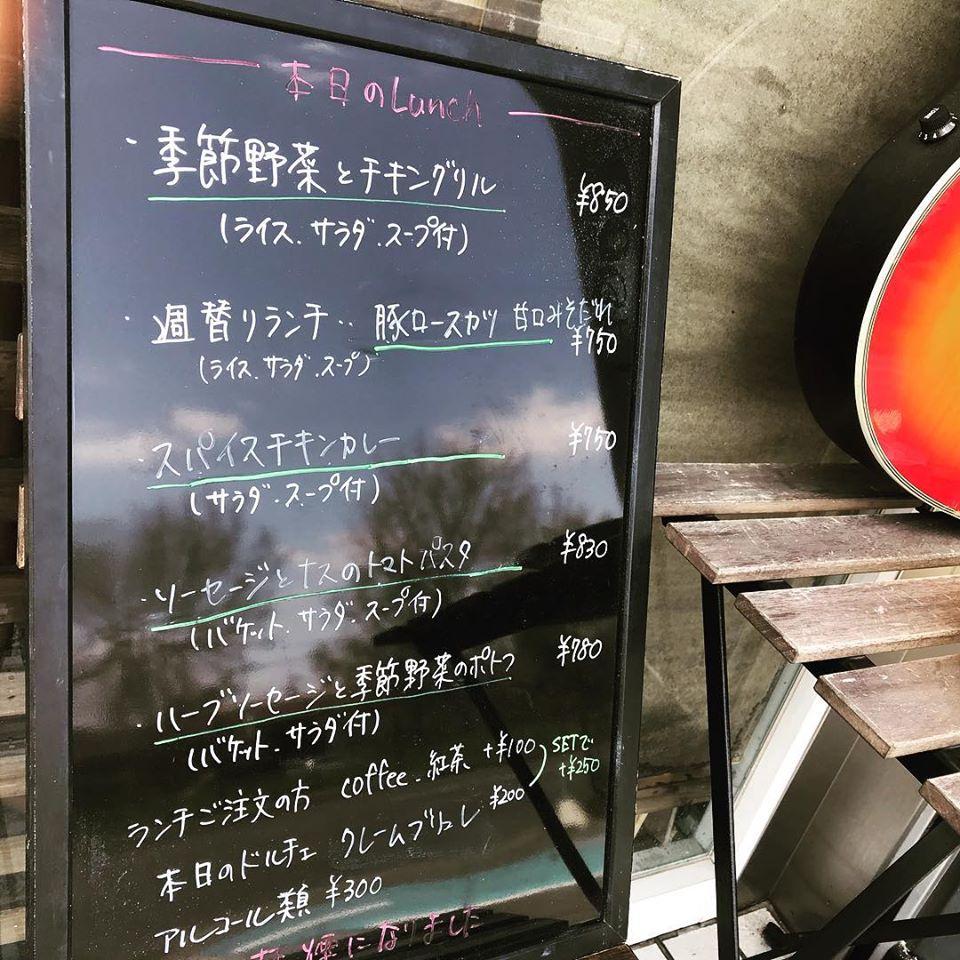 本日のLunch
・季節野菜とチキングリル ¥850
(ライス.サラダ.スープ付)
・週替りランチ‥豚ロースカツ 甘口みそだれ
¥750
(ライス.サラダ.スープ)
・スパイスチキンカレー ¥750
(サラダ.スープ付)
・ソーセージとナスのトマトパスタ ¥830
(バケット.サラダ.スープ付)
・ハーブソーセージと季節野菜のポトフ ¥780
(バケット.サラダ付)
ランチご注文の方 coffee.紅茶 +¥100
SETで
+¥250
本日のドルチェ クレームブリュレ ¥200
アルコール類 ¥300
煙になりました